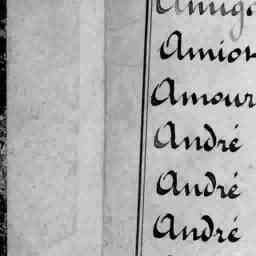 Amiot
Amour
André
André
André